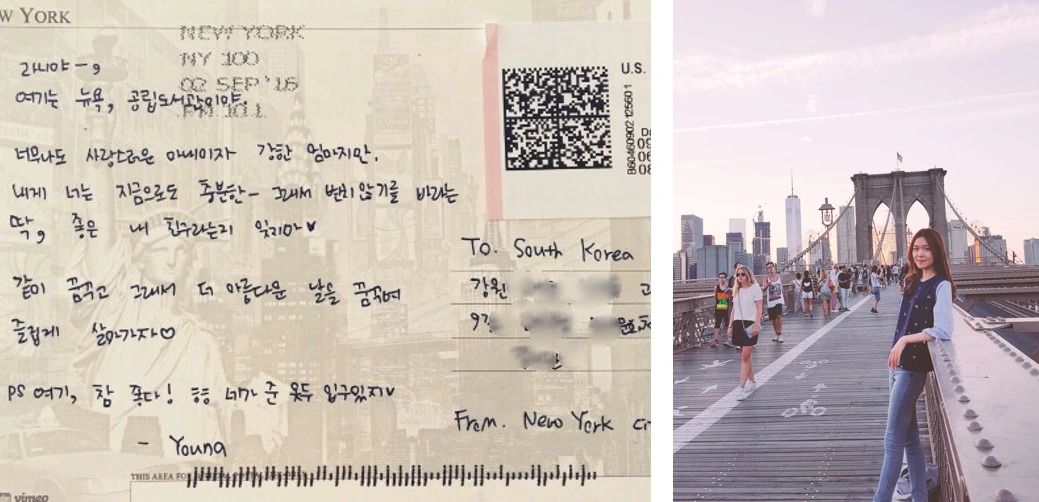 W YORK
NEW YORK
NY 100
02 SEP '16
PM 10 L
라니야-,
여기는 뉴욕, 공립도서관이야.
너무나도 사랑스러운 아내이자 강한 엄마지만,
내게 너는 지금으로도 충분한- 그래서 변치않기를 바라는
딱, 좋은 내 친구라는걸 잊지마♥
같이 꿈꾸고 그래서 더 아름다운 날을 꿈꾸며
즐겁게 살아가자♡
PS 여기, 참 좋다! ㅎㅎ 네가 준 옷두 입구있지♥
- Youna
U.S.
To. South Korea
강원
From. New York
THIS AREA FO
vimeo